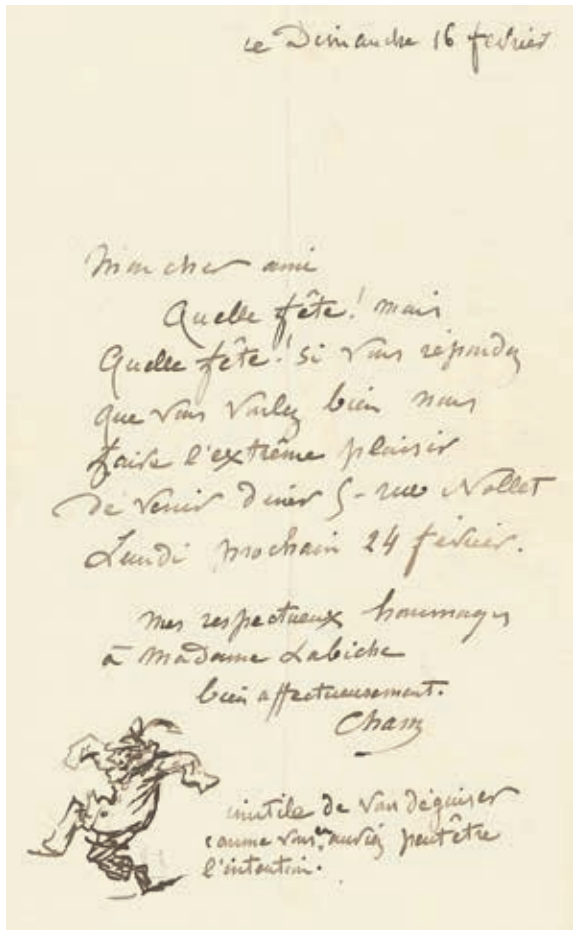 ce Dimanche 16 fevrier
Mon cher ami
Quelle fête! mais
Quelle fête! si vous répondez
que vous voulez bien nous
faire l'extrême plaisir
de venir diner 5 - rue Nollet
Lundi prochain 24 février.
mes respectueux hommages
à Madame Labiche
bien affectueusement.
Cham
inutile de vous déguiser
comme vous en auriez peut être
l'intention.